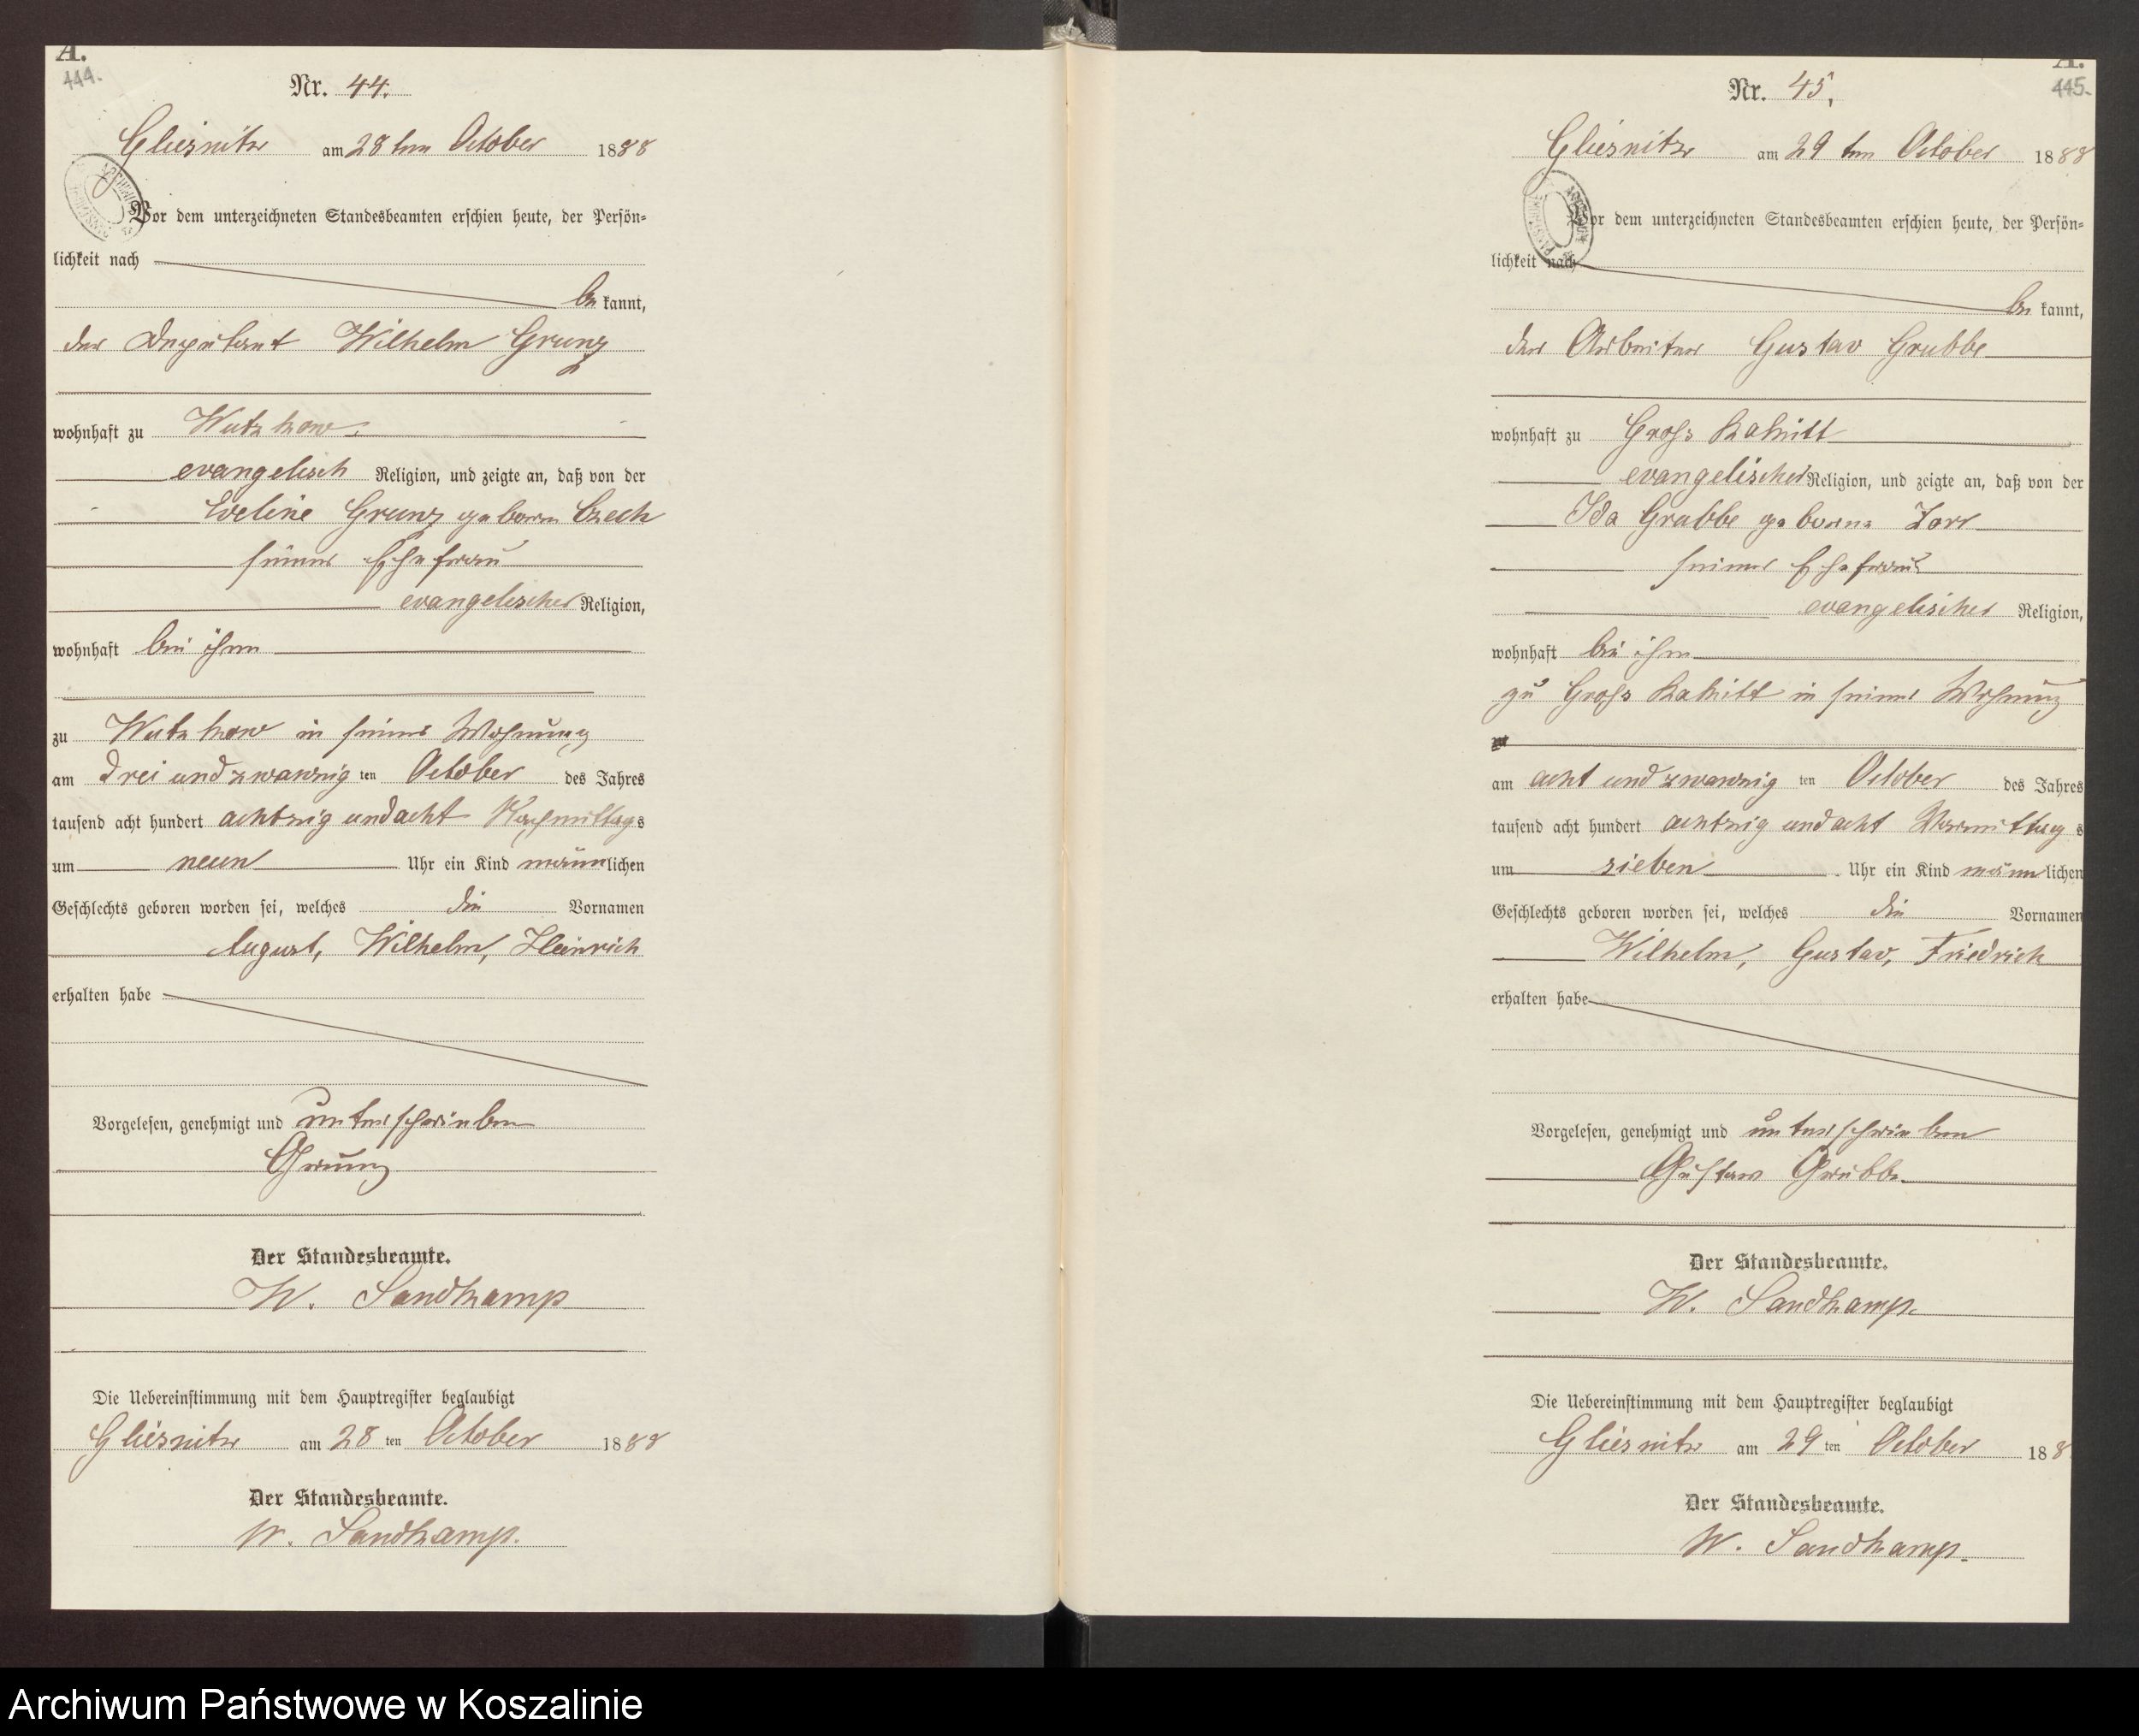 A.
444.
Nr. 44.
Gliesnitz am 28ten October 1888
Vor dem unterzeichneten Standesbeamten erschien heute, der Persön-
lichkeit nach
be kannt,
der Deputant Wilhelm Grunz
wohnhaft zu Wutzkow
evangelisch Religion, und zeigte an, daß von der
Eveline Grunz geboren Czech
seiner Ehefrau
evangelischer Religion,
wohnhaft bei ihm
zu Wutzkow in seiner Wohnung
am drei und zwanzig ten October des Jahres
tausend acht hundert achtzig und acht Nachmittags
um neun Uhr ein Kind männlichen
Geschlechts geboren worden sei, welches die Vornamen
August, Wilhelm, Heinrich
erhalten habe
Vorgelesen, genehmigt und unterschrieben
Grunz
Der Standesbeamte.
W. Sandkamp
Die Uebereinstimmung mit dem Hauptregister beglaubigt
Gliesnitz am 28 ten October 1888
Der Standesbeamte.
W. Sandkamp.
A.
445.
Nr. 45.
Gliesnitz am 29 ten October 1888
Vor dem unterzeichneten Standesbeamten erschien heute, der Persön-
lichkeit nach
be kannt,
der Arbeiter Gustav Grubbe
wohnhaft zu Gross Rakitt
evangelischer Religion, und zeigte an, daß von der
Ida Grubbe geborne
seiner Ehefrau
evangelischer Religion,
wohnhaft bei ihm
zu Gross Rakitt in seiner Wohnung
am acht und zwanzig ten October des Jahres
tausend acht hundert achtzig und acht Vormittag s
um sieben Uhr ein Kind männlichen
Geschlechts geboren worden sei, welches die Vornamen
Wilhelm, Gustav, Friedrich
erhalten habe
Vorgelesen, genehmigt und unterschrieben
Gustav Grubbe.
Der Standesbeamte.
W. Sandkamp.
Die Uebereinstimmung mit dem Hauptregister beglaubigt
Gliesnitz am 29 ten October 188
Der Standesbeamte.
W. Sandkamp.
Archiwum Państwowe w Koszalinie